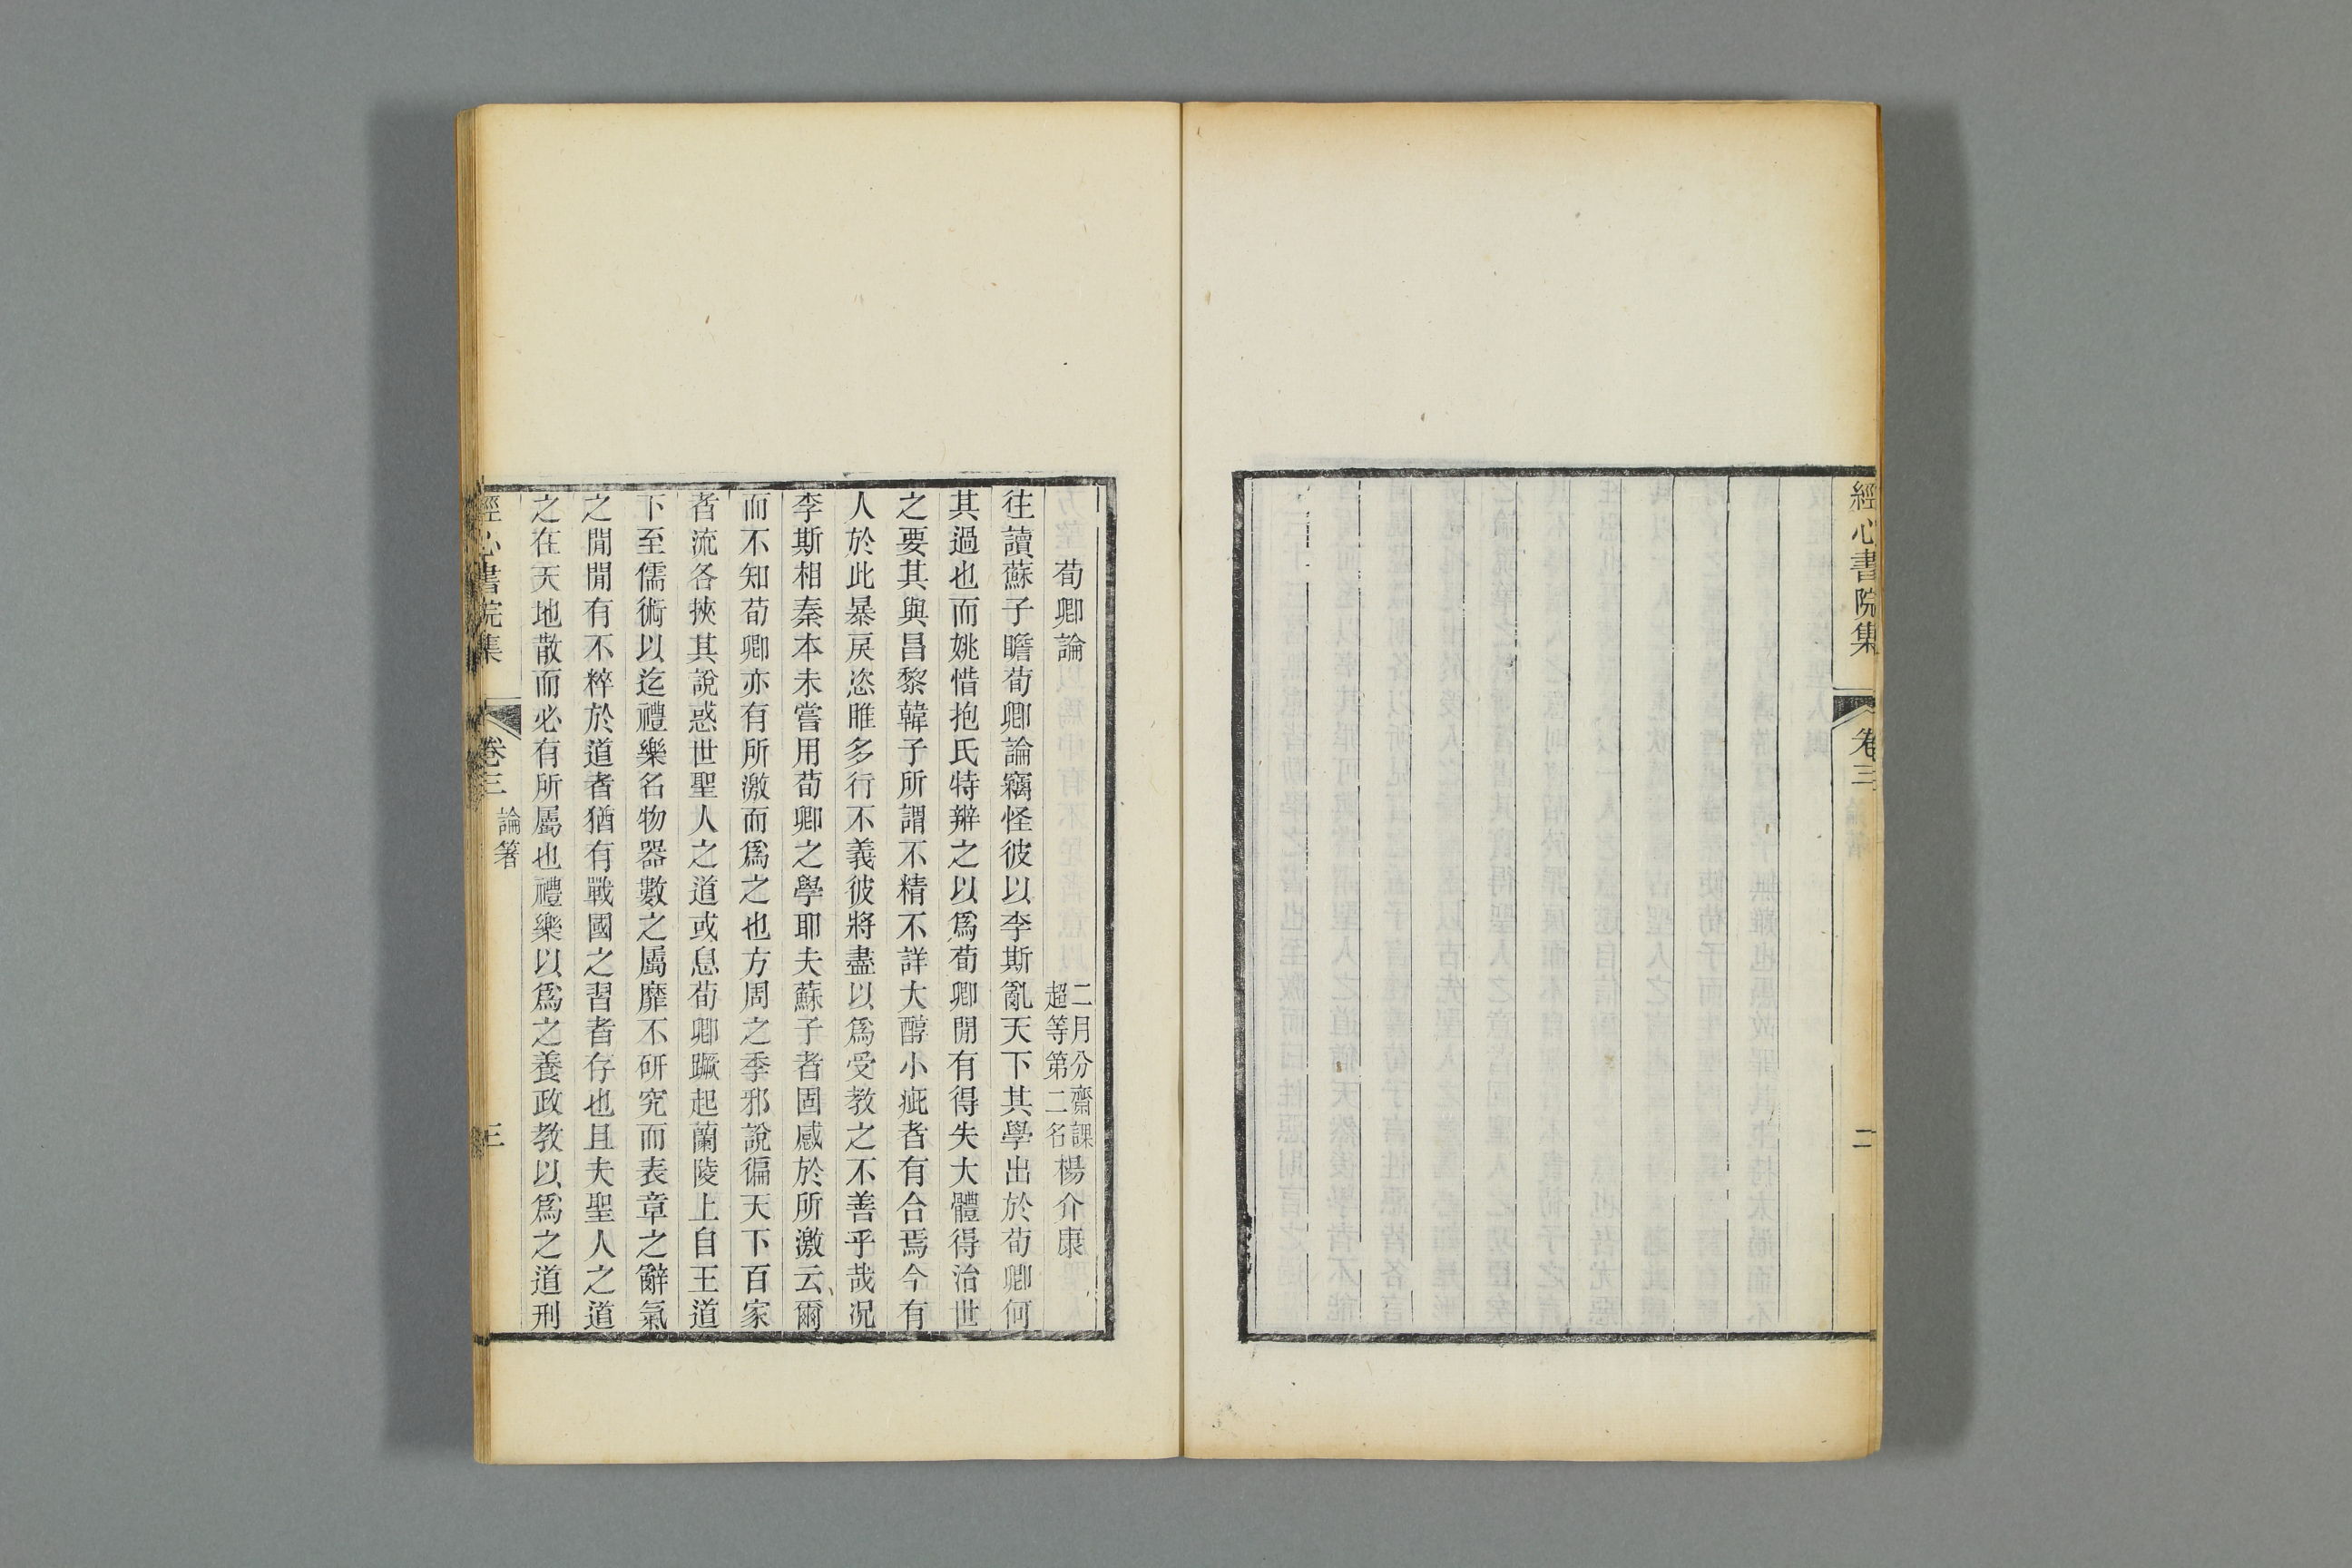 經心書院集
卷三
二
荀卿論
二月分齋課
超等第二名
楊介康
往讀蘇子瞻荀卿論竊怪彼以李斯亂天下其學出於荀卿何
其過也而姚惜抱氏特辦之以爲荀卿閒有得失大體得治世
之要其與昌黎韓子所謂不精不詳大醇小疵者有合焉今有
人於此暴戾恣睢多行不義彼將盡以爲受教之不善乎哉況
李斯相秦本未嘗用荀卿之學耶夫蘇子者固感於所激云爾
而不知荀卿亦有所激而爲之也方周之季邪說徧天下百家
者流各挾其說惑世聖人之道或息荀卿蹶起蘭陵上自王道
下至儒術以迄禮樂名物器數之屬靡不研究而表章之辭氣
之閒閒有不粹於道者猶有戰國之習者存也且夫聖人之道
之在天地散而必有所屬也禮樂以爲之養政教以爲之道刑
經心書院集
卷三
論箸
三